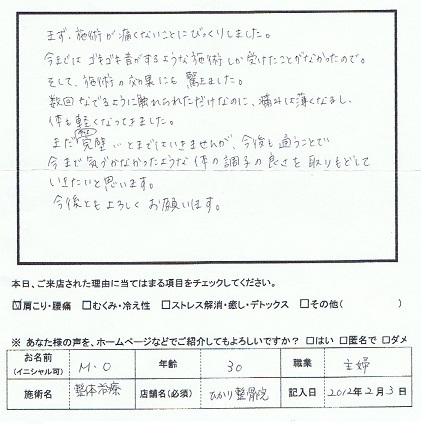 まず、施術が痛くないことにびっくりしました。
今までは ゴキゴキ音がするような施術しか受けたことがなかったので。
そして、施術の効果にも 驚きました。
数回なでるように触れられただけなのに、痛みは薄くなるし、
体も軽くなってきました。
まだ 完璧 とまではいきませんが、今後も 通うことで
今まで気づかなかったような 体の調子の良さを 取りもどして
いきたいと思います。
今後ともよろしくお願います。
本日、ご来店された理由に当てはまる項目をチェックしてください。
☑肩こり・腰痛 □むくみ・冷え性 □ストレス解消・癒し・デトックス □その他( )
※ あなた様の声を、ホームページなどでご紹介してもよろしいですか？ □はい □匿名で □ダメ
お名前 (イニシャル可) M・O 年齢 30 職業 主婦
施術名 整体治療 店舗名(必須) ひかり整骨院 記入日 2012年2月3日